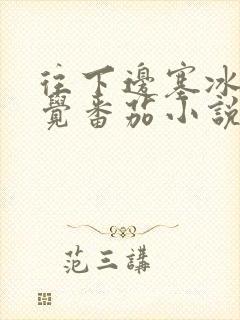 往下邊塞冰
覺番茄小說
范三講